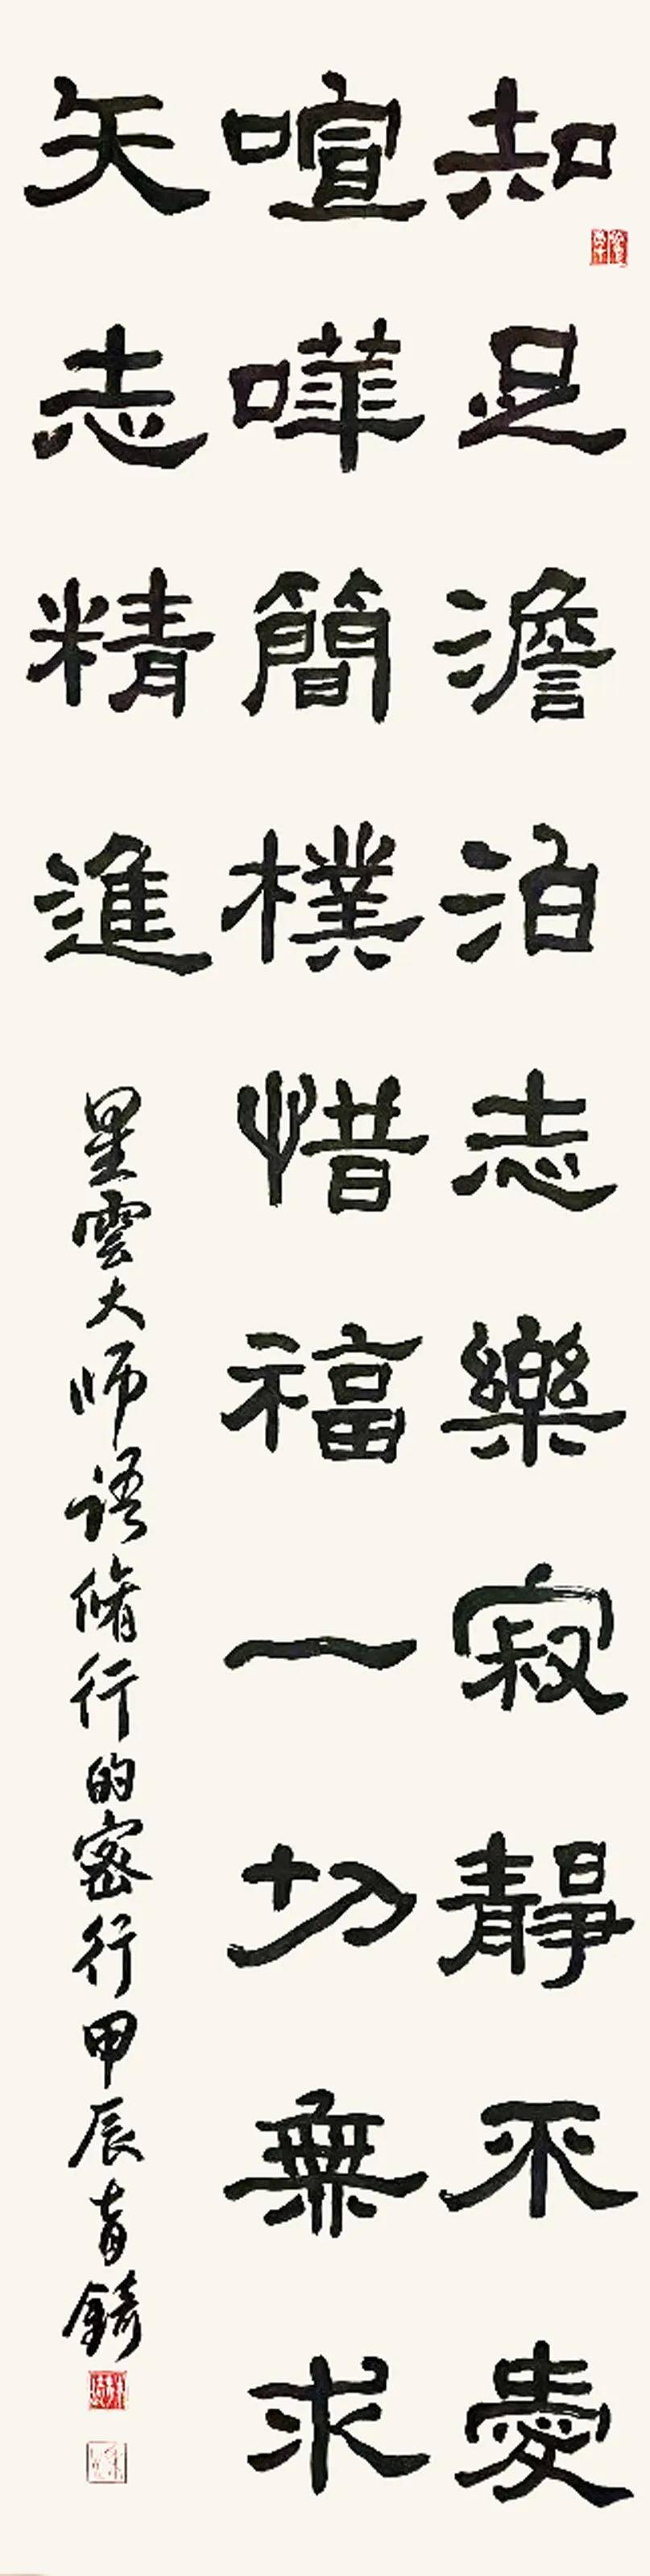 知足澹泊志樂寂靜不愛
喧嘩簡樸惜福一切無求
矢志精進
星雲大师语脩行的密行甲辰育錡